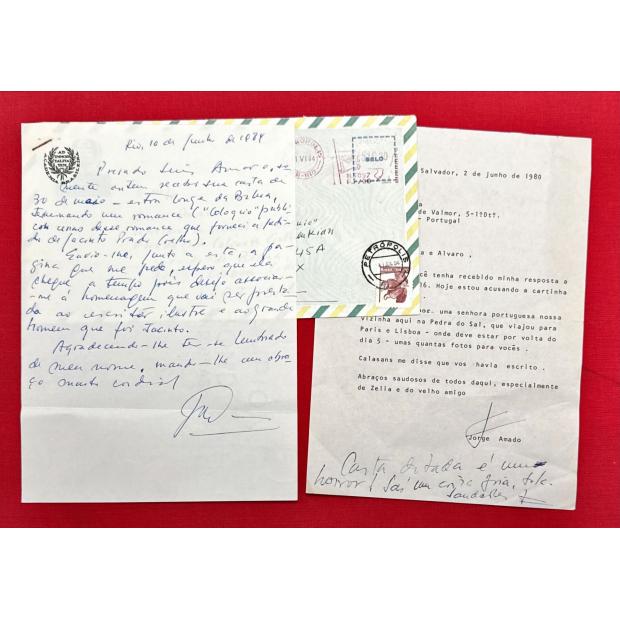 AD
IMMOR
TALITA
TEM
Rio, 10 de junho de 1984
Prezado Amoro, so-
mente ontem recebi sua carta de
30 de maio – estou longe da Bahia,
terminando um romance ("Coloquio" publi-
cou cenas desse romance que forneci a pedi-
do de Jacinto Prado Coelho).
Envio-lhe, junto a esta, a pá-
gina que me pede, espero que ela
chegue a tempo pois desejo associar-
me à homenagem que vai ser presta-
da ao escritor ilustre e ao grande
homem que foi Jacinto.
Agradecendo-lhe ter-se lembrado
de meu nome, mando-lhe um abra-
ço muito cordial
SELO
PETRÓPOLIS
Salvador, 2 de junho de 1980
de Valmor, 5-1ºDtº.
- Portugal
a e Alvaro .
cê tenha recebido minha resposta a
16. Hoje estou acusando a cartinha
or. uma senhora portuguesa nossa
vizinha aqui na Pedra do Sal, que viajou para
Paris e Lisboa - onde deve estar por volta do
dia 5 - umas quantas fotos para vocês .
Calasans me disse que vos havia escrito .
Abraços saudosos de todos daqui, especialmente
de Zelia e do velho amigo
Jorge Amado
Carta ditada é um
horror! Sai uma coisa fria, tola.
Saudades